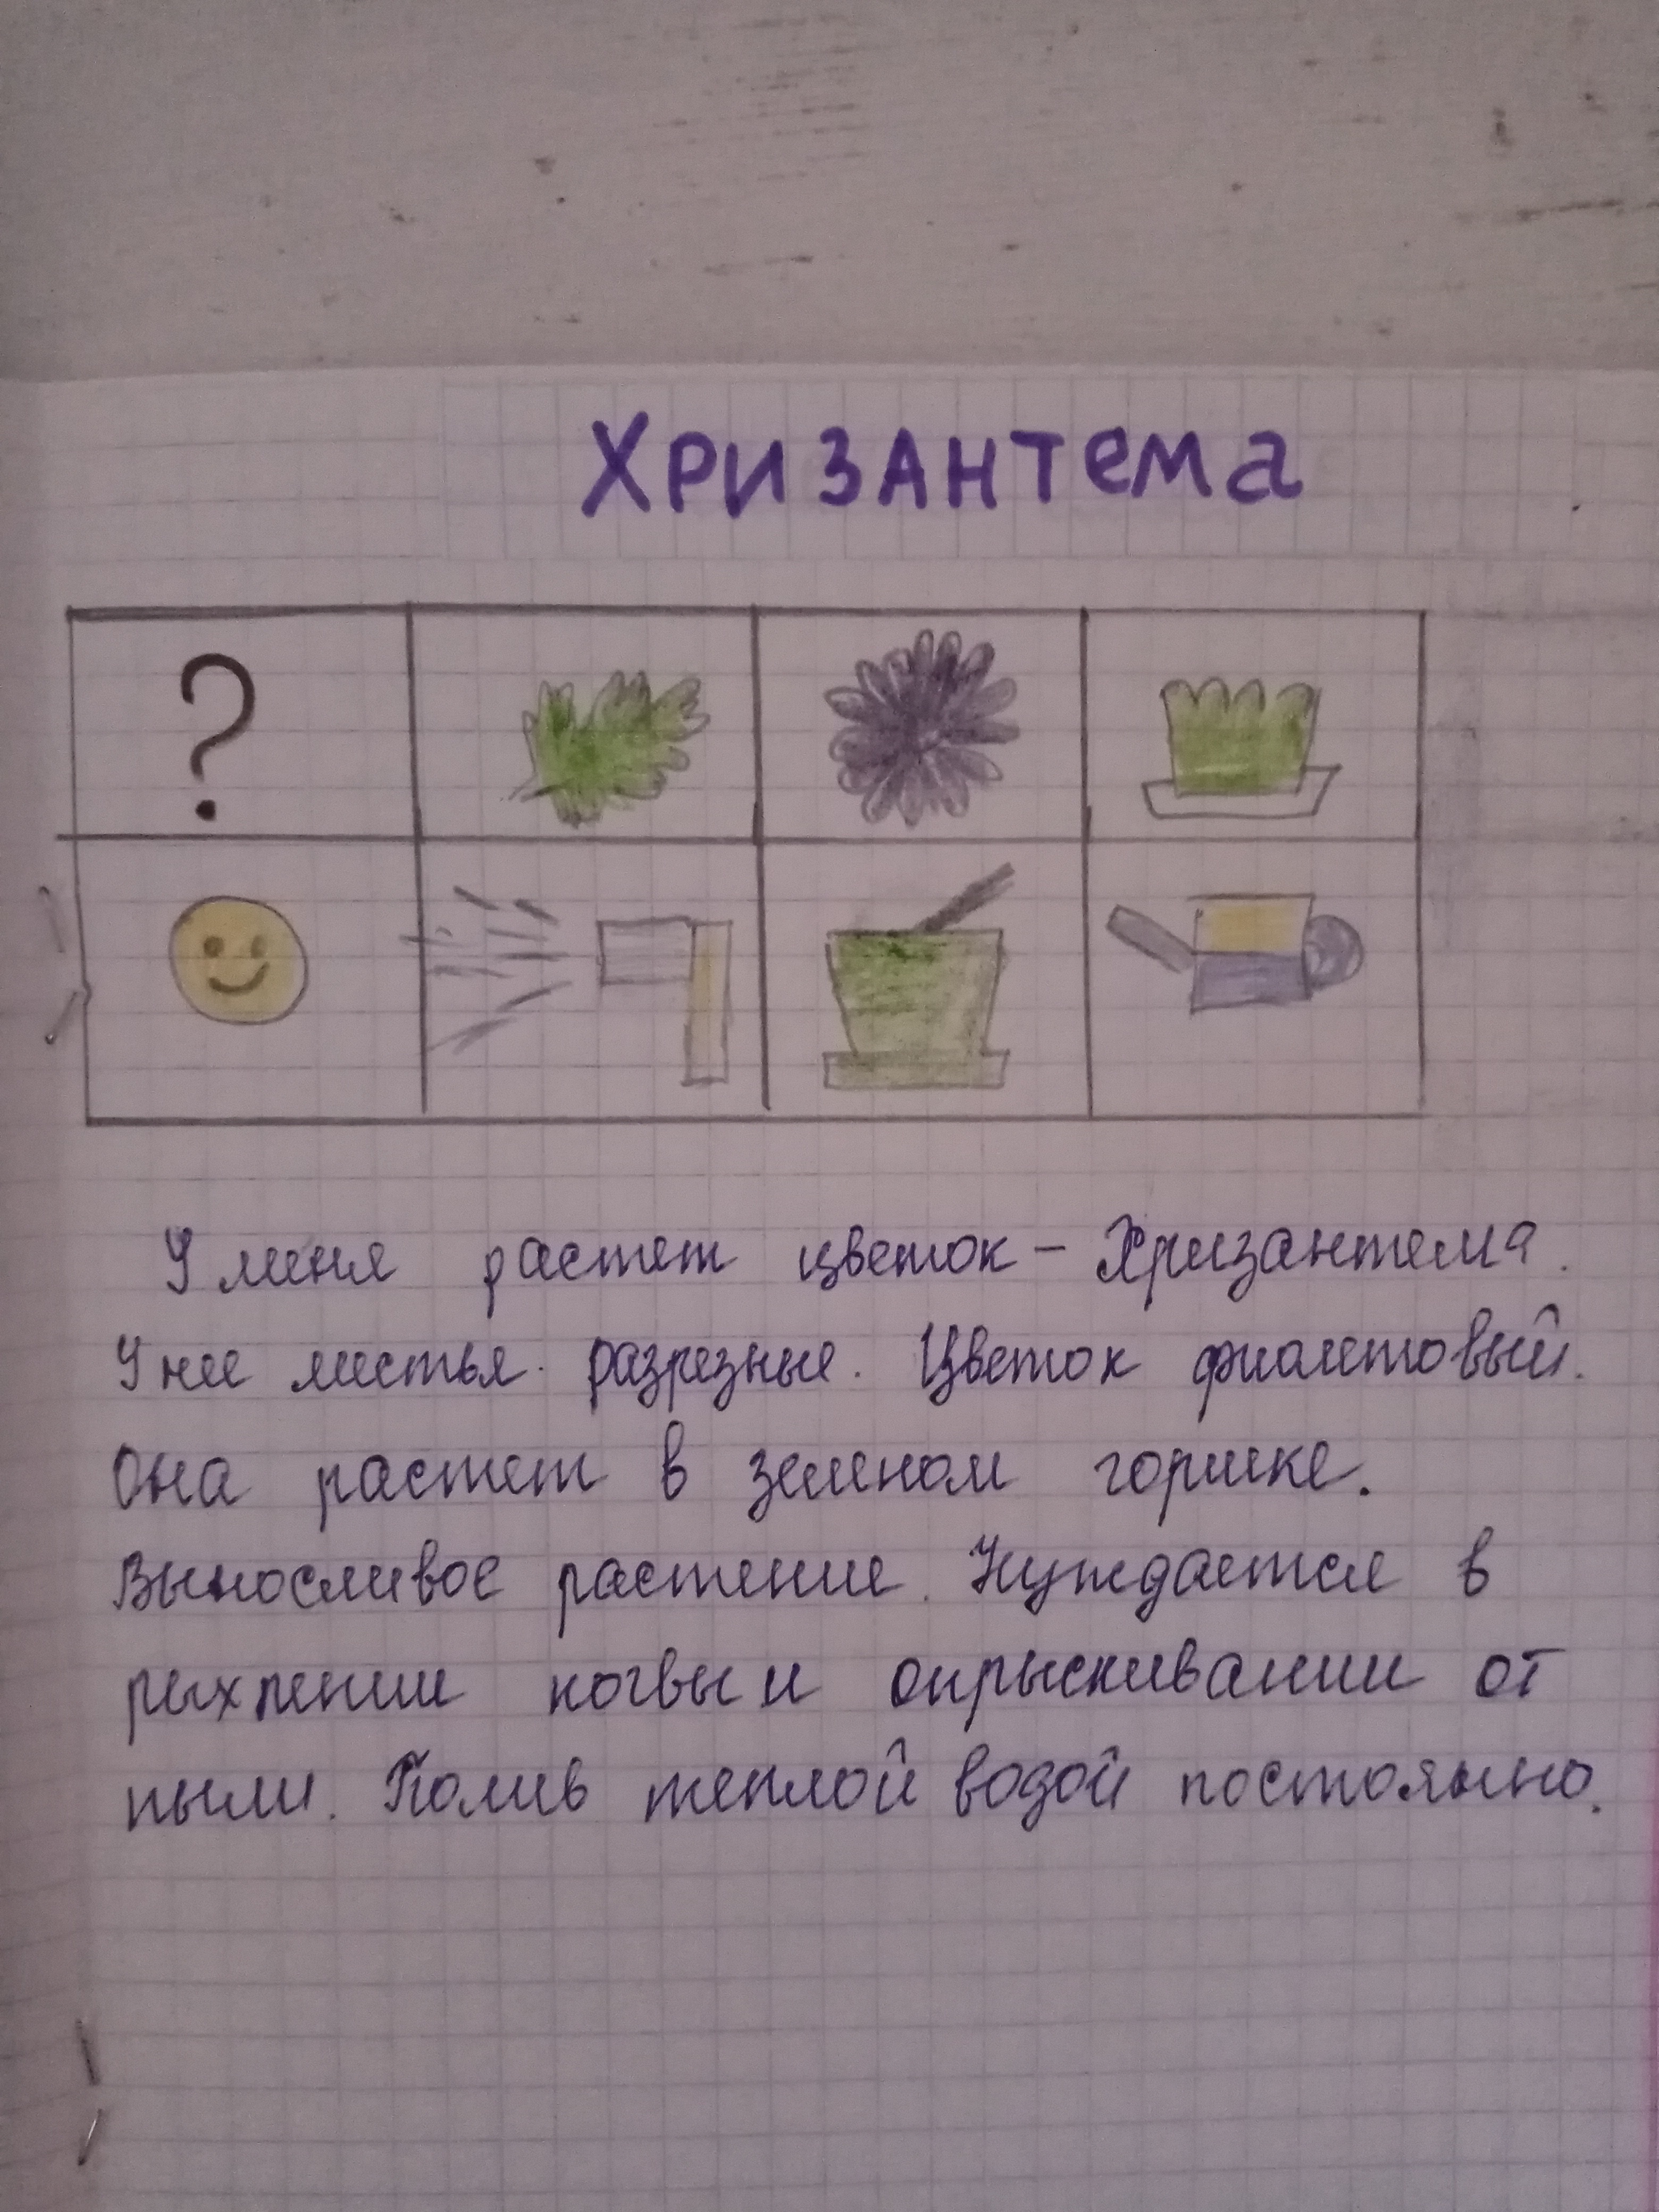 Хризантема
?
У меня растет цветок - Хризантема.
У нее листья разрезные. Цветок фиолетовый.
Она растет в зеленом горшке.
Выносливое растение. Нуждается в
рыхлении почвы и опрыскивании от
пыли. Полив теплой водой постоянно.